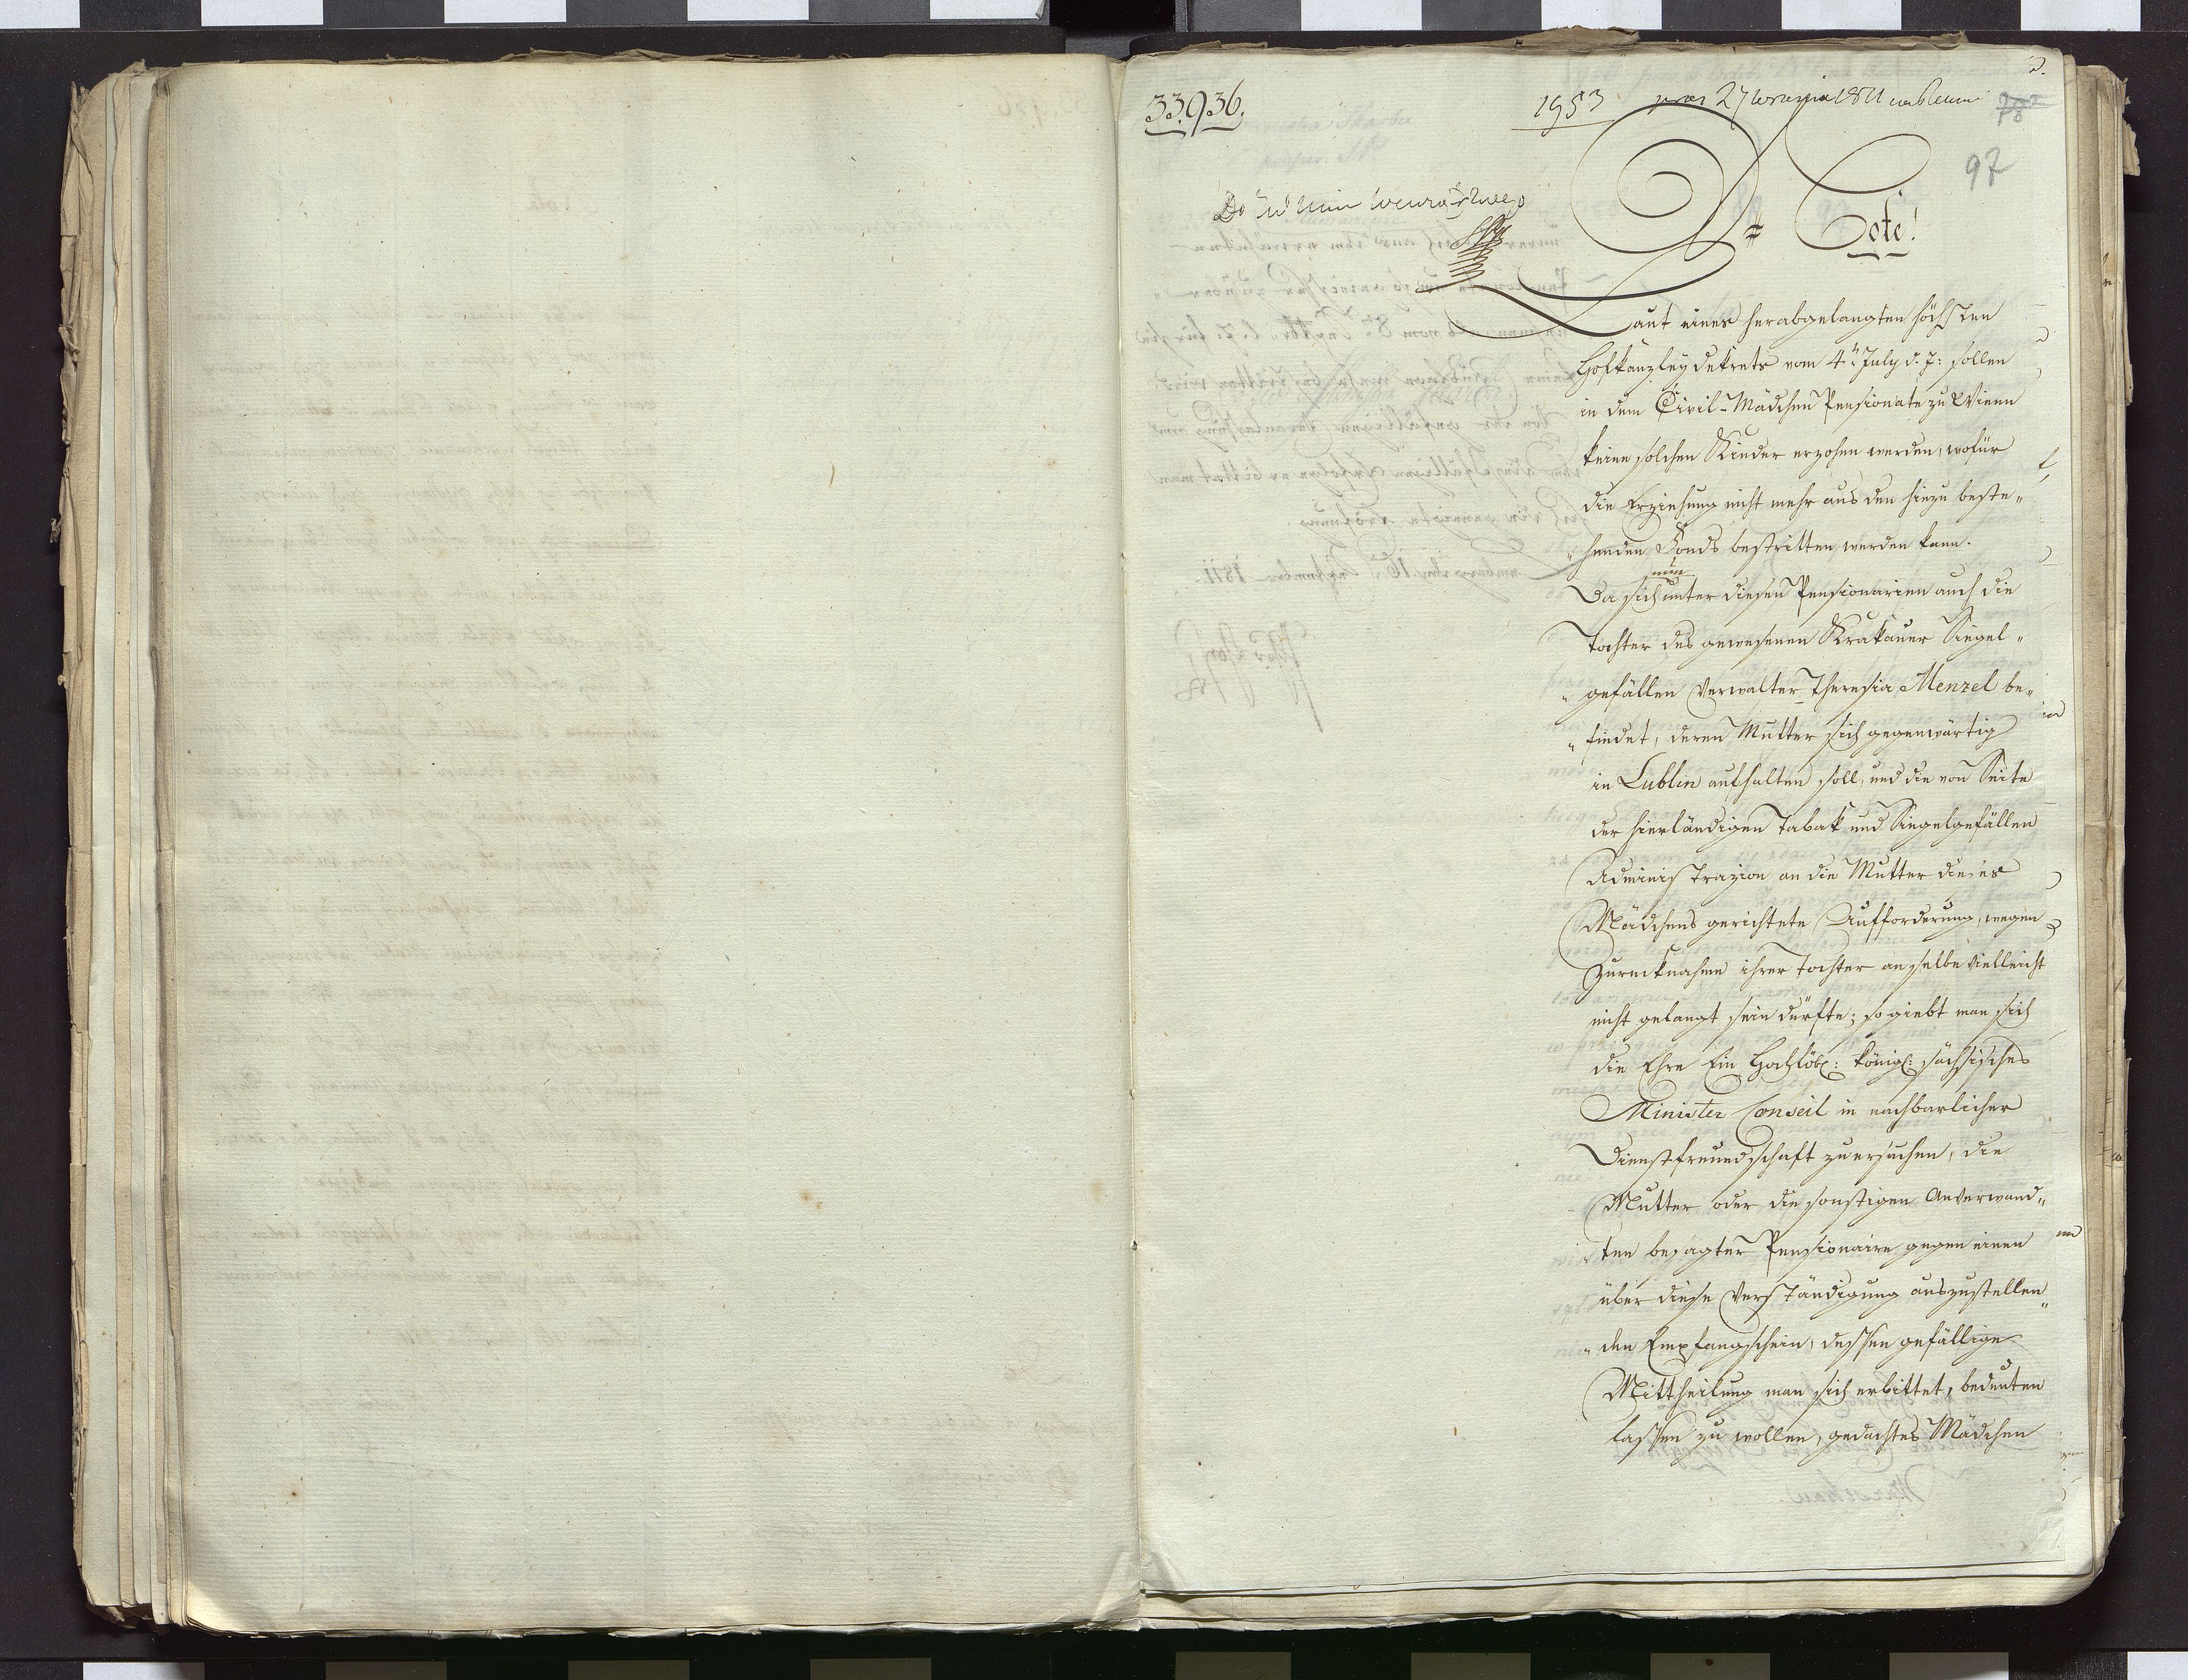 33936.
1953 27 1811
78
97
Note!
Laut eines herabgelangten höchsten
Hofkanzleydekrets vom 4ten July d. J: sollen
in dem Civil-Mädchen Pensionate zu Wienn
keine solchen Kinder erzohen werden, wofür
die Erziehung nicht mehr aus den hiezu beste„
„henden Fonds bestritten werden kann.
nun
Da sich unter diesen Pensionarien auch die
Tochter des gewesenen Krakauer Siegel„
„gefällen Verwalter Theresia Menzel be„
„findet, deren Mutter sich gegenwärtig
in Lublin aufhalten soll, und die von Seite
der hierländigen Tabak und Siegelgefällen
Administrazion an die Mutter dieses
Mädchens gerichtete Aufforderung, wegen
Zurücknahme ihrer Tochter an selbe vielleicht
nicht gelangt sein dürfte; so giebt man sich
die Ehre Ein Hochlöbl: königl: sächsisches
Minister Conseil in nachbarlicher
Dienstfreundschaft zu ersuchen, die
Mutter oder die sonstigen Anverwand„
ten besagter Pensionaire gegen einen
über diese Verständigung auszustellen„
„den Empfangschein, dessen gefällige
Mittheilung man sich erbittet, bedeuten
lassen zu wollen, gedachtes Mädchen